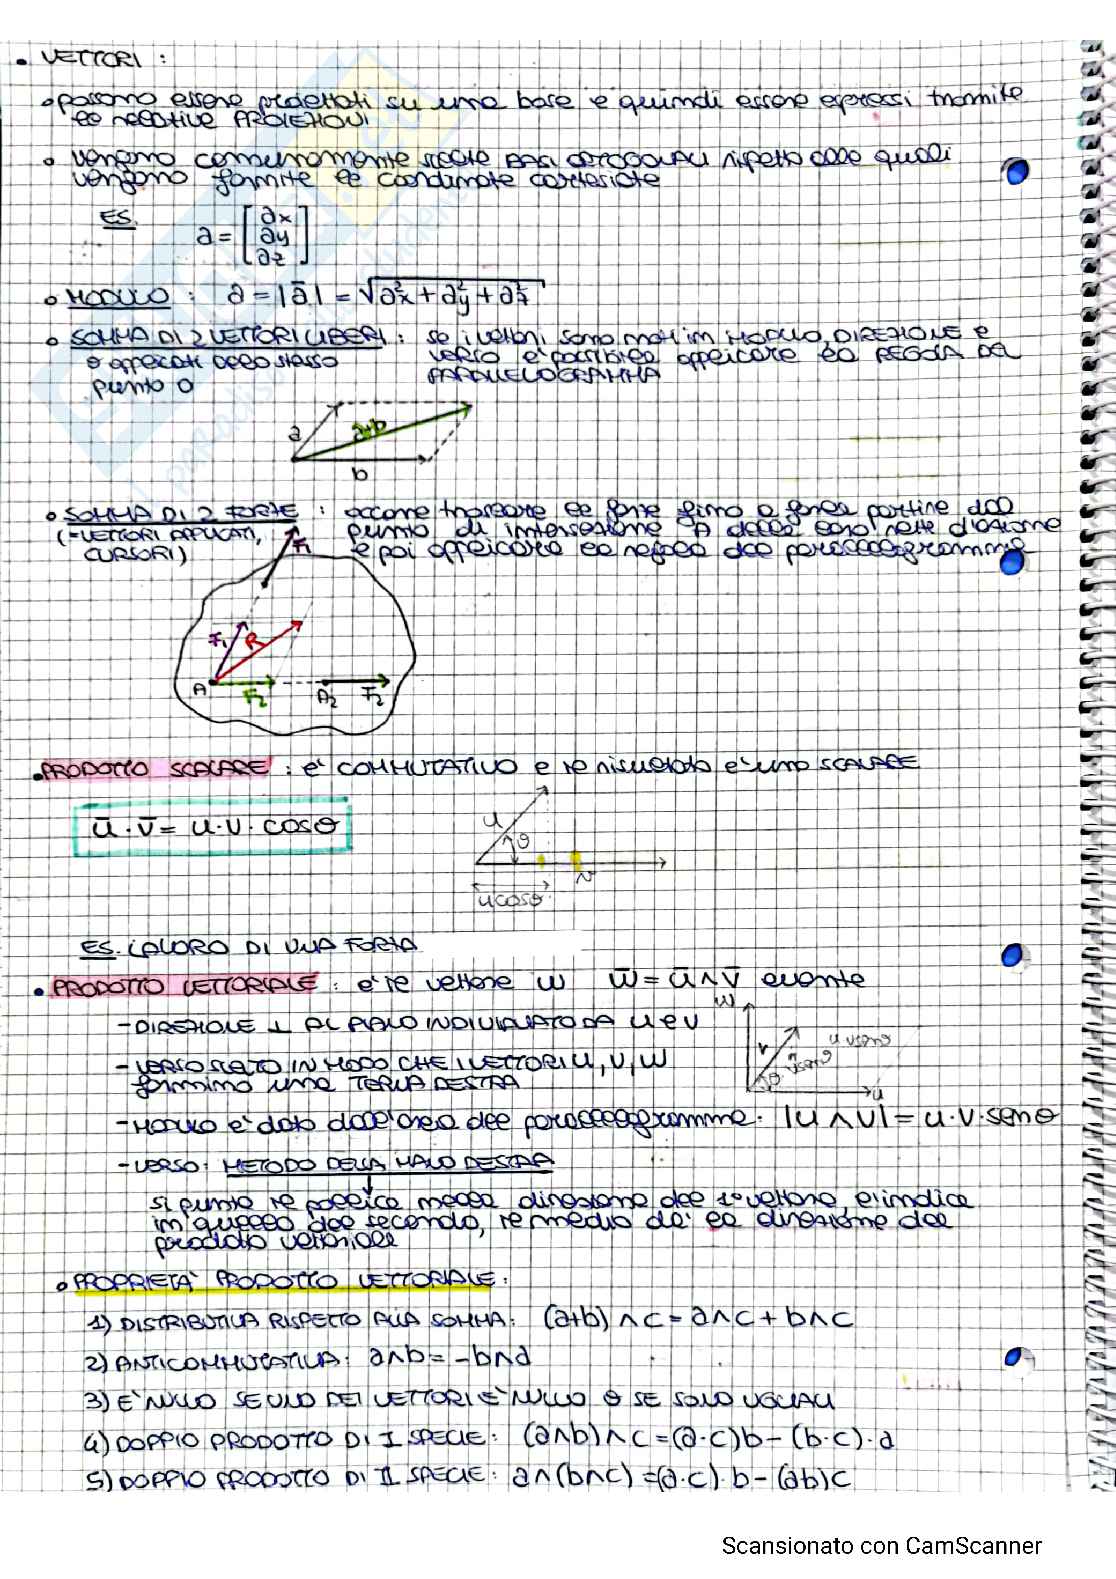 • VETTORI :
• possono essere proiettati su una base e quindi essere espressi tramite
le relative PROIEZIONI
• vengono comunemente scelte BASI ORTOGONALI rispetto alle quali
vengono fornite le coordinate cartesiate
ES.
a = [ax
ay
az]
• MODULO : a = |ā| = √a²x + a²y + a²z
• SOMMA DI 2 VETTORI LIBERI : se i vettori sono noti in MODULO, DIREZIONE e
o applicati dello stesso verso è possibile applicare la REGOLA DEL
punto O PARALLELOGRAMMA
a a+b
b
• SOMMA DI 2 FORZE : occorre traslare le forze fino a farle partire dal
(=VETTORI APPLICATI, punto di intersezione A delle loro rette d'azione
CURSORI) F₁ e poi applicare la regola del parallelogramma
F₁ R
A F₂ A₂ F₂
• PRODOTTO SCALARE : è COMMUTATIVO e il risultato è uno SCALARE
ū · v̄ = u·v·cosθ
u θ
v
ucosθ
ES. LAVORO DI UNA FORZA
• PRODOTTO VETTORIALE : è il vettore w w̄ = ū ∧ v̄ avente
- DIREZIONE ⊥ AL PIANO INDIVIDUATO DA u e v
w v u vsenθ
θ vsenθ
u
- VERSO SCELTO IN MODO CHE I VETTORI U, V, W
formino una TERNA DESTRA
- MODULO è dato dall'area del parallelogramma: |u ∧ v| = u·v·senθ
- VERSO: METODO DELLA MANO DESTRA
si punta il pollice nella direzione del 1° vettore e l'indice
in quella del secondo, il medio dà la direzione del
prodotto vettoriale
• PROPRIETA' PRODOTTO VETTORIALE :
1) DISTRIBUTIVA RISPETTO ALLA SOMMA: (a+b) ∧ c = a∧c + b∧c
2) ANTICOMMUTATIVA: a∧b = -b∧a
3) E' NULLO SE UNO DEI VETTORI E' NULLO O SE SONO UGUALI
4) DOPPIO PRODOTTO DI I SPECIE: (a∧b)∧c = (a·c)b - (b·c)·a
5) DOPPIO PRODOTTO DI II SPECIE: a∧(b∧c) = (a·c)·b - (ab)c
Scansionato con CamScanner